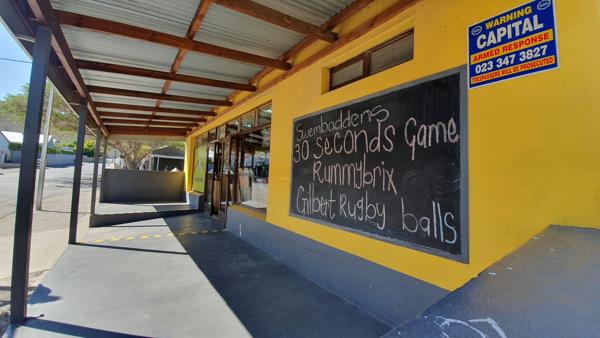 Swembaddens
30 Seconds Game
Rummybrix
Gilbert Rugby balls
WARNING
CAPITAL
ARMED RESPONSE
023 347 3827
TRESPASSERS WILL BE PROSECUTED